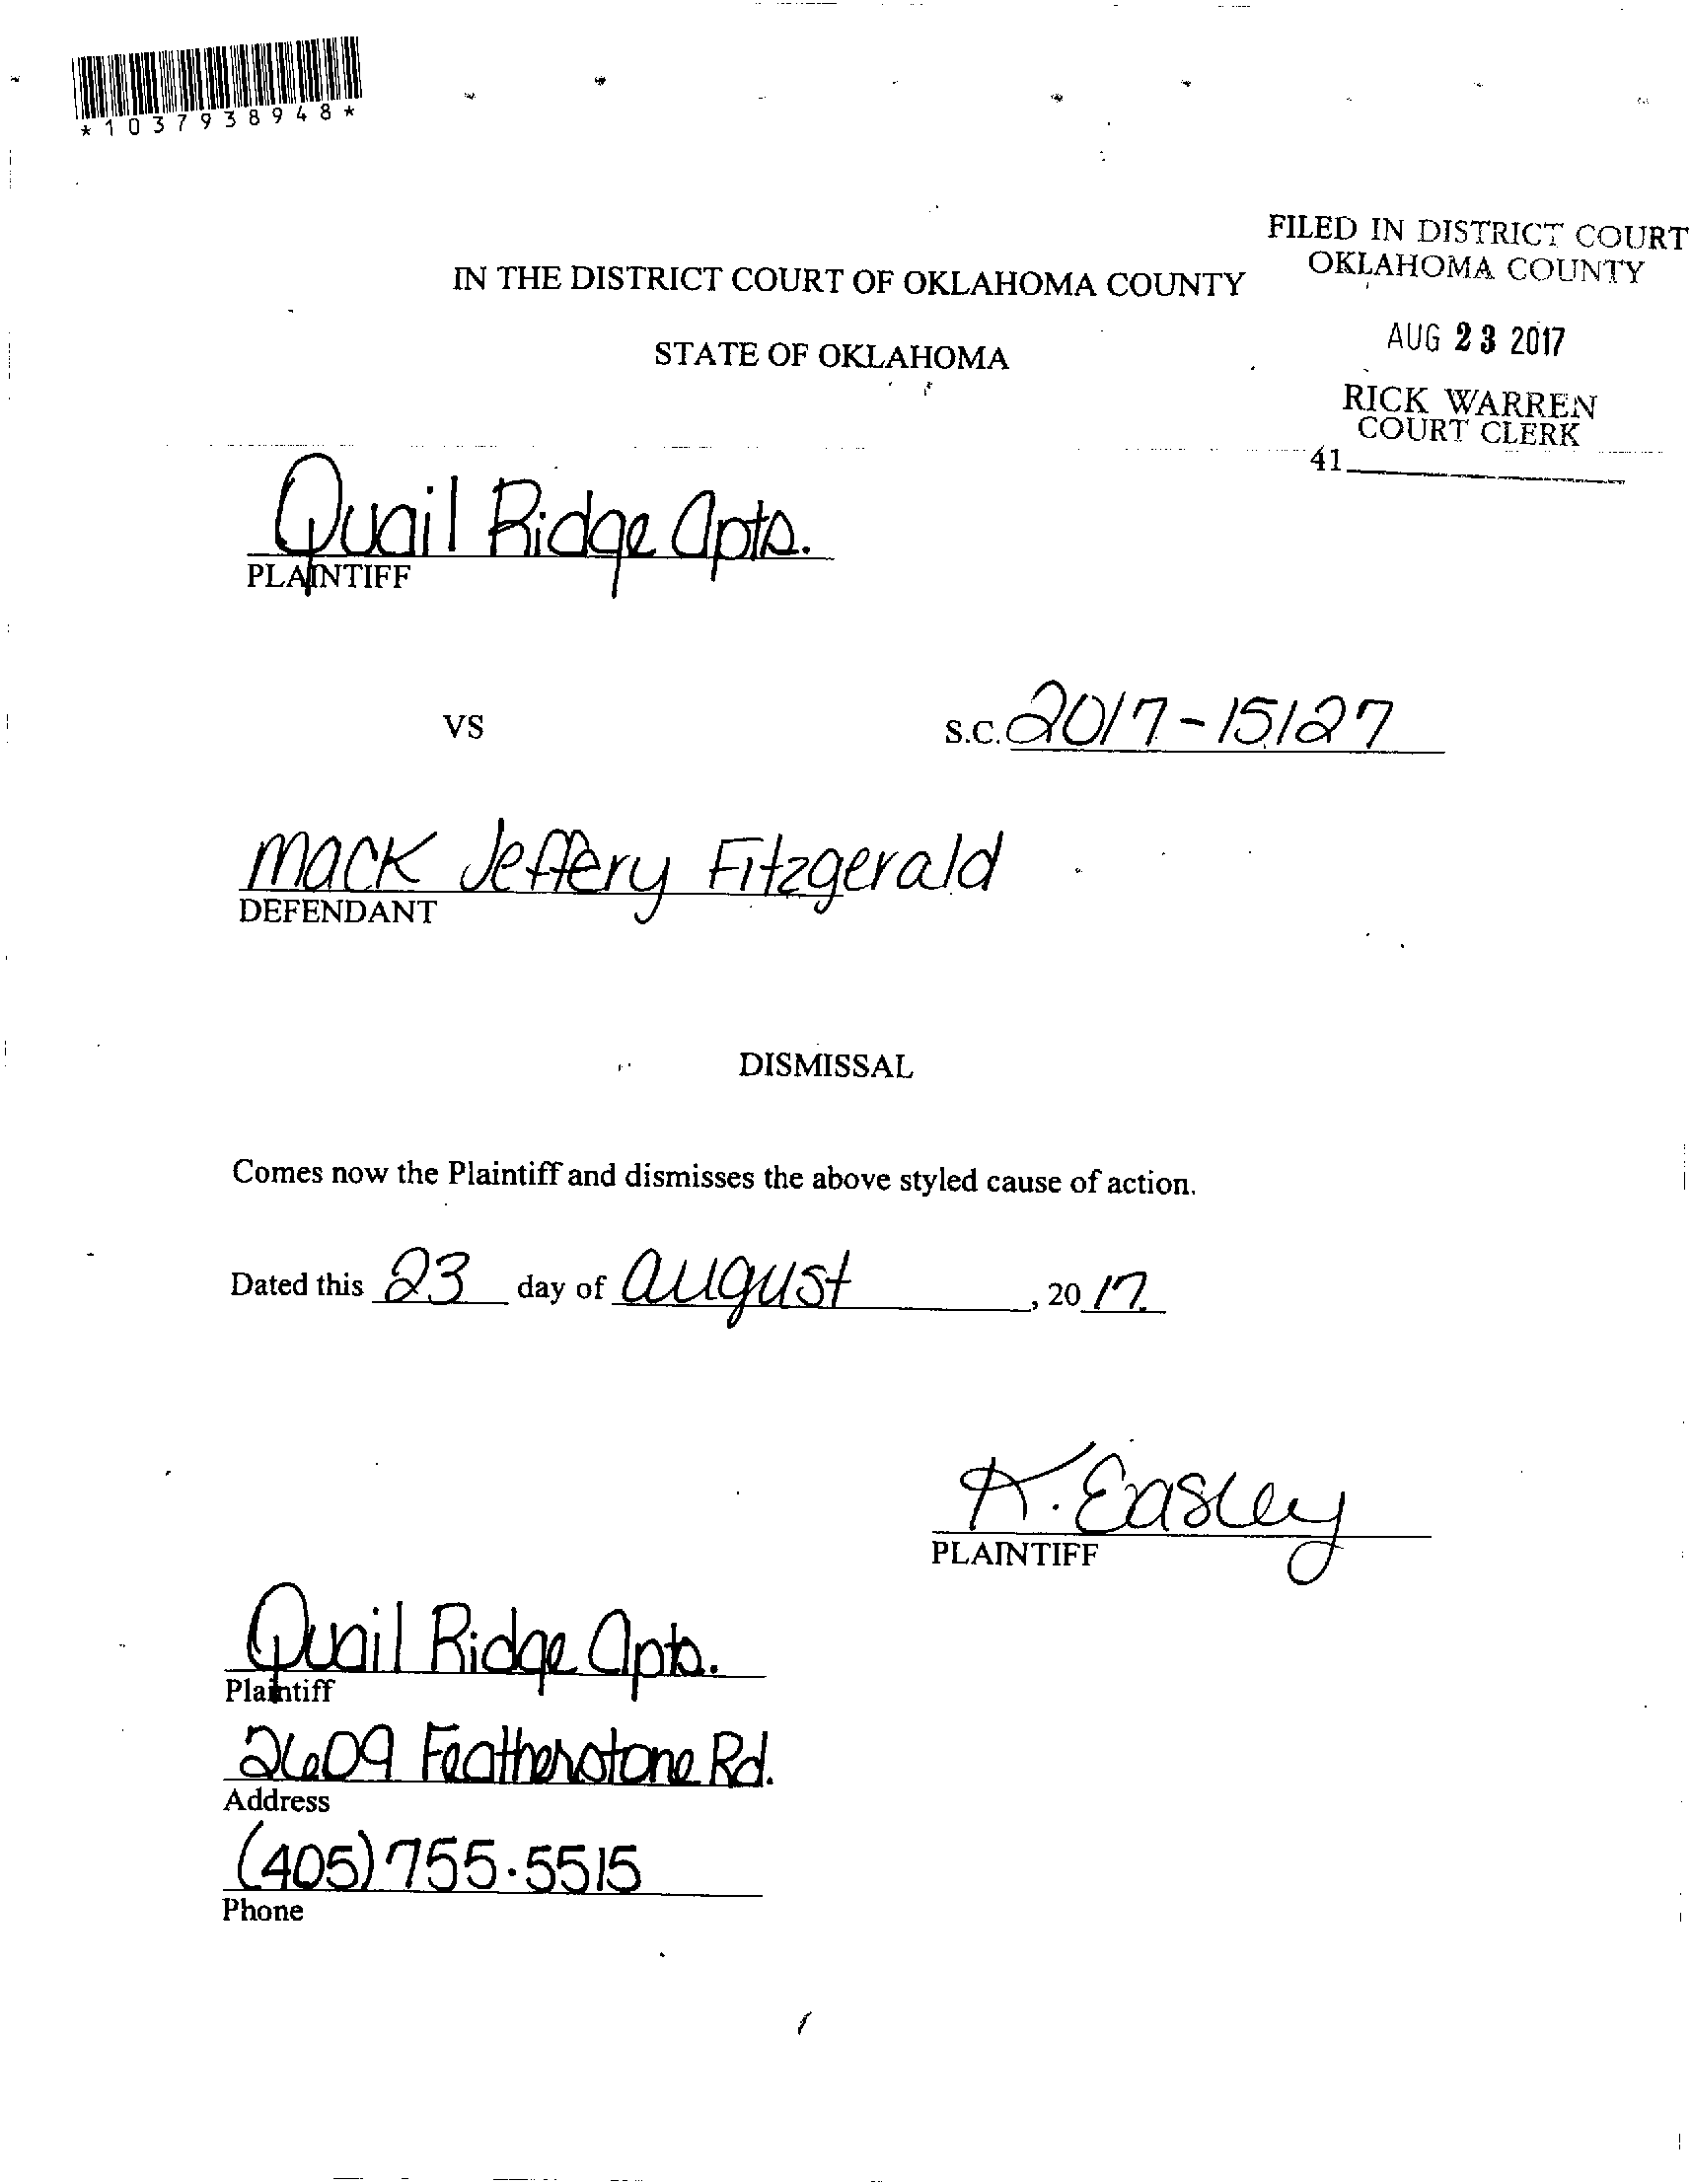 *1037938948*
FILED IN DISTRICT COURT
OKLAHOMA COUNTY
IN THE DISTRICT COURT OF OKLAHOMA COUNTY
STATE OF OKLAHOMA
AUG 23 2017
RICK WARREN
COURT CLERK
41
Quail Ridge Apts.
PLAINTIFF
VS
S.C. 2017-15127
Mack Jeffery Fitzgerald
DEFENDANT
DISMISSAL
Comes now the Plaintiff and dismisses the above styled cause of action.
Dated this 23 day of august, 2017.
K. Easley
PLAINTIFF
Quail Ridge Apts.
Plaintiff
2609 Featherstone Rd.
Address
(405) 755.5515
Phone